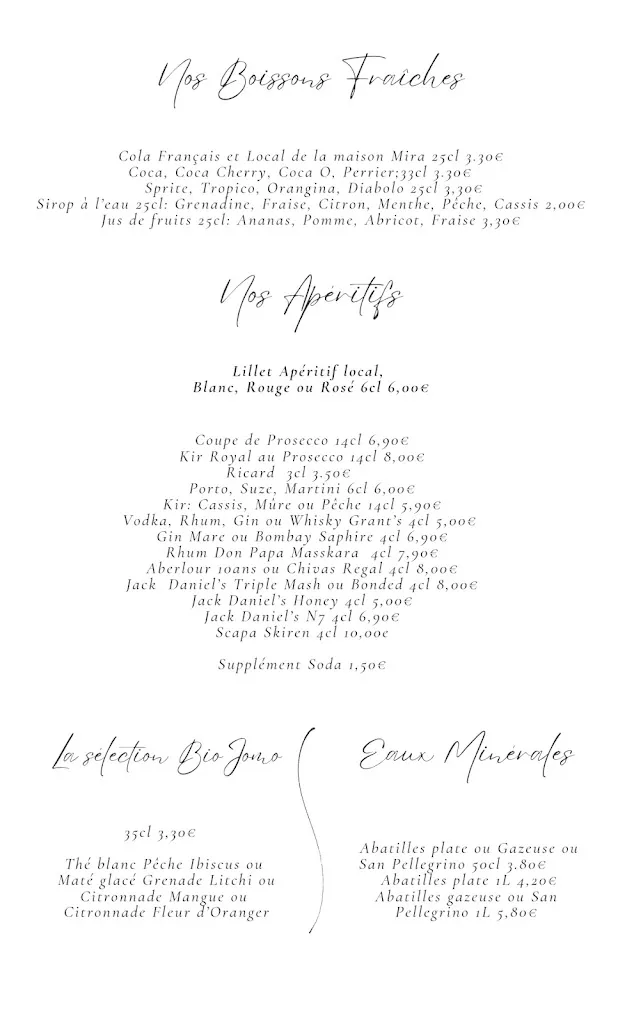 Nos Boissons Fraîches
Cola Français et Local de la maison Mira 25cl 3.30€
Coca, Coca Cherry, Coca O, Perrier;33cl 3.30€
Sprite, Tropico, Orangina, Diabolo 25cl 3,30€
Sirop à l'eau 25cl: Grenadine, Fraise, Citron, Menthe, Pêche, Cassis 2,00€
Jus de fruits 25cl: Ananas, Pomme, Abricot, Fraise 3,30€
Nos Apéritifs
Lillet Apéritif local,
Blanc, Rouge ou Rosé 6cl 6,00€
Coupe de Prosecco 14cl 6,90€
Kir Royal au Prosecco 14cl 8,00€
Ricard 3cl 3.50€
Porto, Suze, Martini 6cl 6,00€
Kir: Cassis, Mûre ou Pêche 14cl 5,90€
Vodka, Rhum, Gin ou Whisky Grant's 4cl 5,00€
Gin Mare ou Bombay Saphire 4cl 6,90€
Rhum Don Papa Masskara 4cl 7,90€
Aberlour 10ans ou Chivas Regal 4cl 8,00€
Jack Daniel's Triple Mash ou Bonded 4cl 8,00€
Jack Daniel's Honey 4cl 5,00€
Jack Daniel's N7 4cl 6,90€
Scapa Skiren 4cl 10,00e
Supplément Soda 1,50€
La sélection Bio Jomo
35cl 3,30€
Thé blanc Pêche Ibiscus ou
Maté glacé Grenade Litchi ou
Citronnade Mangue ou
Citronnade Fleur d'Oranger
Eaux Minérales
Abatilles plate ou Gazeuse ou
San Pellegrino 50cl 3.80€
Abatilles plate 1L 4,20€
Abatilles gazeuse ou San
Pellegrino 1L 5,80€